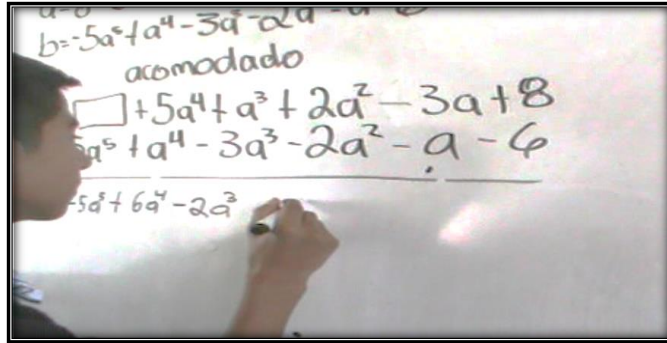 b=-5a⁵+a⁴-3a³-2a
acomodado
□+5a⁴+a³+2a²-3a+8
5a⁵+a⁴-3a³-2a²-a-6
-5a⁵+6a⁴-2a³